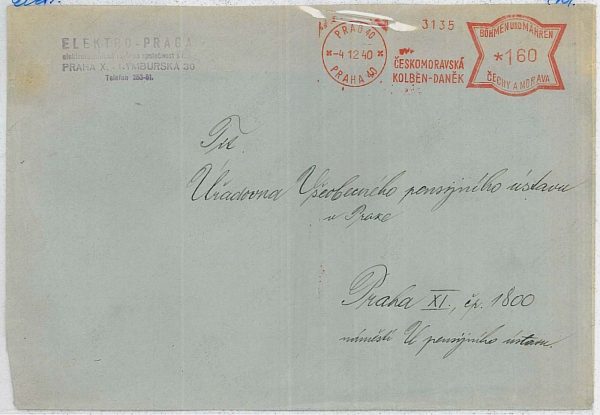 ELEKTRO-PRAGA
PRAHA X. - NYMBURSKÁ 36
Telefon
3135
PRAG 10
-4.12.40
PRAHA 10
ČESKOMORAVSKÁ
KOLBEN-DANĚK
BÖHMEN UND MÄHREN
*160
ČECHY A MORAVA
Tit.
Úřadovna Všeobecného pensijního ústavu
v Praze
Praha XI., čp. 1800
náměstí U pensijního ústavu.